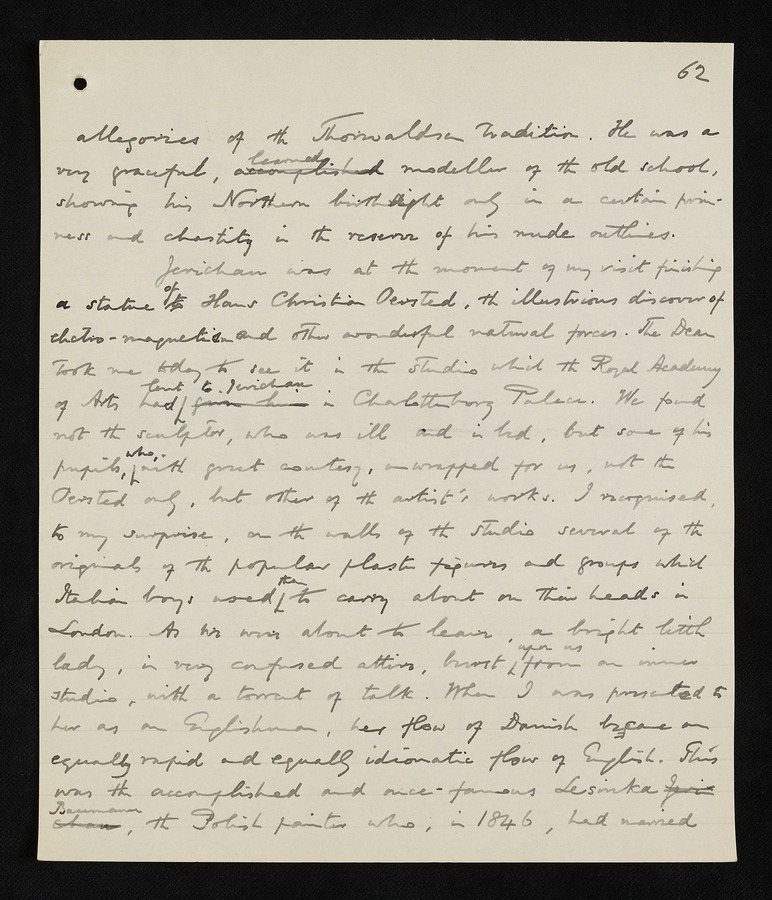 62
allegories of the Thorwaldsen tradition. He was a
very graceful, accomplished learned modeller of the old school,
showing his Northern birthright only in a certain prim-
ness and chastity in the reserve of his nude outlines.
Jerichau was at the moment of my visit finishing
a statue of Hans Christian Oersted, the illustrious discoverer of
electro-magnetism and other wonderful natural forces. The Dean
took me today to see it in the studio which the Royal Academy
of Arts had given him lent to Jerichau in Charlottenborg Palace. We found
not the sculptor, who was ill and in bed, but some of his
pupils, who, with great courtesy, unwrapped for us, not the
Oersted only, but other of the artist's works. I recognised,
to my surprise, on the walls of the studio several of the
originals of the popular plaster figures and groups which
Italian boys used then to carry about on their heads in
London. As we were about to leave, a bright little
lady, in very confused attire, burst upon us from an inner
studio, with a torrent of talk. When I was presented to
her as an Englishman, her flow of Danish became an
equally rapid and equally idiomatic flow of English. This
was the accomplished and once-famous Lesinka Jeri-
chau Baumann, the Polish painter who, in 1846, had married